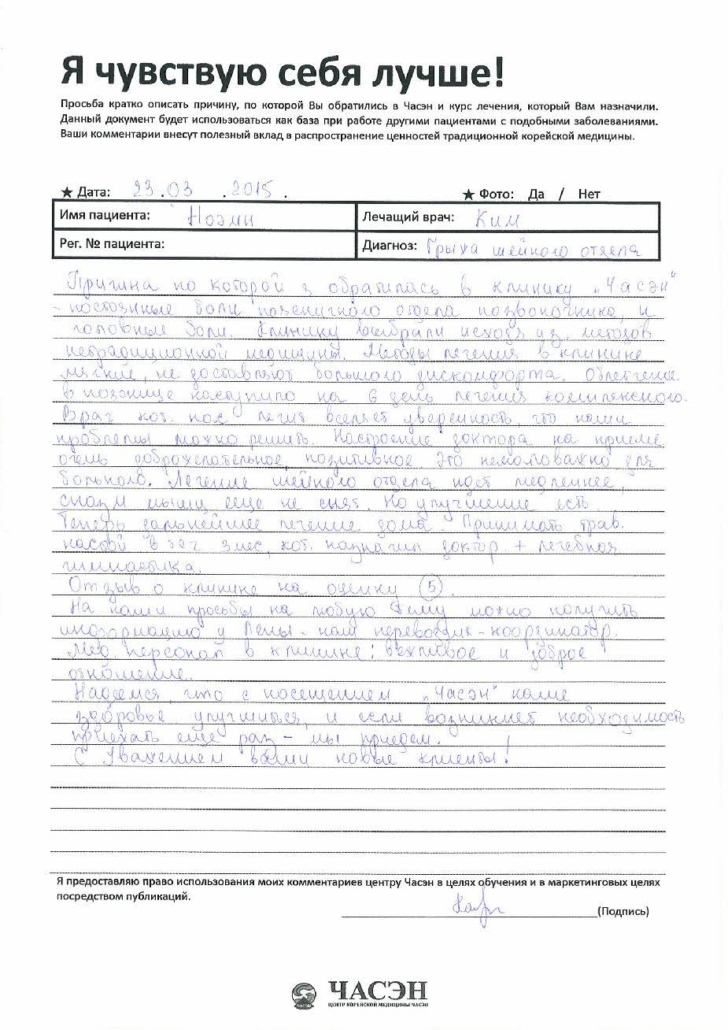 Я чувствую себя лучше!
Просьба кратко описать причину, по которой Вы обратились в Часэн и курс лечения, который Вам назначили.
Данный документ будет использоваться как база при работе другими пациентами с подобными заболеваниями.
Ваши комментарии внесут полезный вклад в распространение ценностей традиционной корейской медицины.
★ Дата: 23.03.2015. ★ Фото: Да / Нет
Имя пациента: Ноэми Лечащий врач: Ким
Рег. № пациента: Диагноз: Грыжа шейного отдела
Причина по которой я обратилась в клинику „Часэн"
- постоянные боли поясничного отдела позвоночника, и
головные боли. Клинику выбрали исходя из методов
нетрадиционной медицины. Методы лечения в клинике
мягкие, не доставляют большого дискомфорта. Облегчение
в пояснице наступило на 6 день лечения комплексного.
Врач кот. нас лечит вселяет уверенность, что наши
проблемы можно решить. Настроение доктора на приеме
очень доброжелательное, позитивное Это немаловажно для
больного. Лечение шейного отдела идет медленнее,
спазм мышц еще не снят. Но улучшение есть.
Теперь дальнейшее лечение дома. Принимать трав.
настой в теч 3 мес, кот. назначил доктор + лечебная
гимнастика.
Отзыв о клинике на оценку (5).
На наши просьбы на любую тему можно получить
информацию у Лены - наш переводчик - координатор.
Мед. персонал в клинике: вежливое и доброе
отношение.
Надеемся, что с посещением „Часэн" наше
здоровье улучшиться, и если возникнет необходимость
приехать еще раз - мы приедем.
С Уважением ваши новые клиенты!
Я предоставляю право использования моих комментариев центру Часэн в целях обучения и в маркетинговых целях
посредством публикаций.
(Подпись)
ЧАСЭН
ЦЕНТР КОРЕЙСКОЙ МЕДИЦИНЫ ЧАСЭН